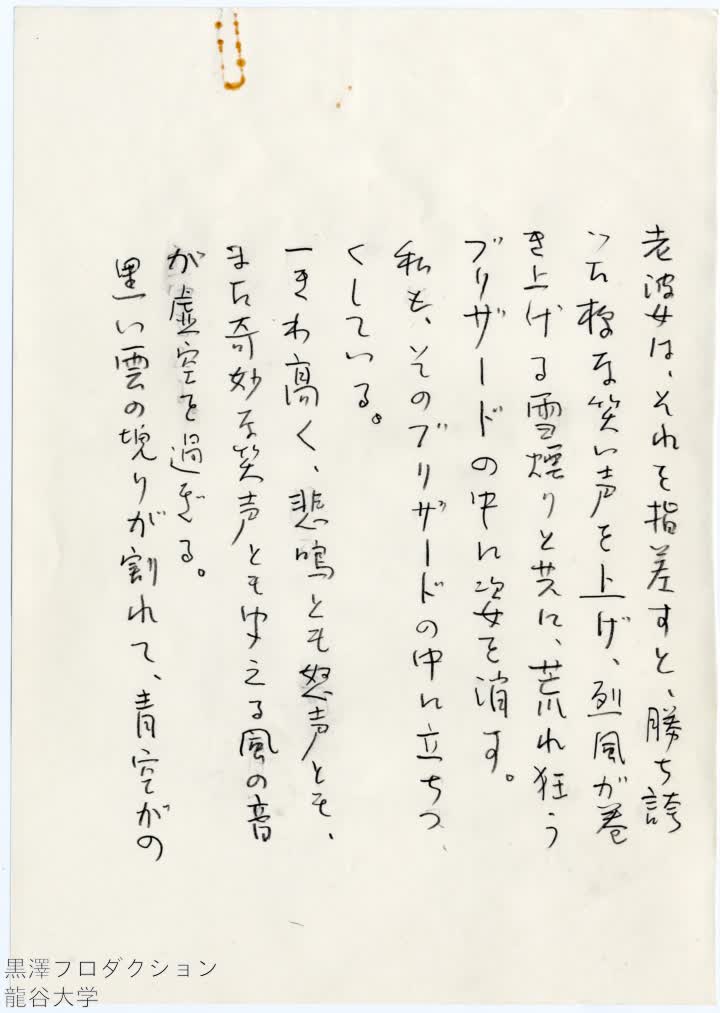 老婆女は、それを指差すと、勝ち誇
った様な笑い声を上げ、烈風が巻
き上げる雪煙りと共に、荒れ狂う
ブリザードの中に姿を消す。
私も、そのブリザードの中に立ちつ
くしている。
一きわ高く、悲鳴とも怒声とも、
また奇妙な笑声とも聞える風の音
が虚空を過ぎる。
黒い雲の塊りが割れて、青空がの
黒澤プロダクション
龍谷大学